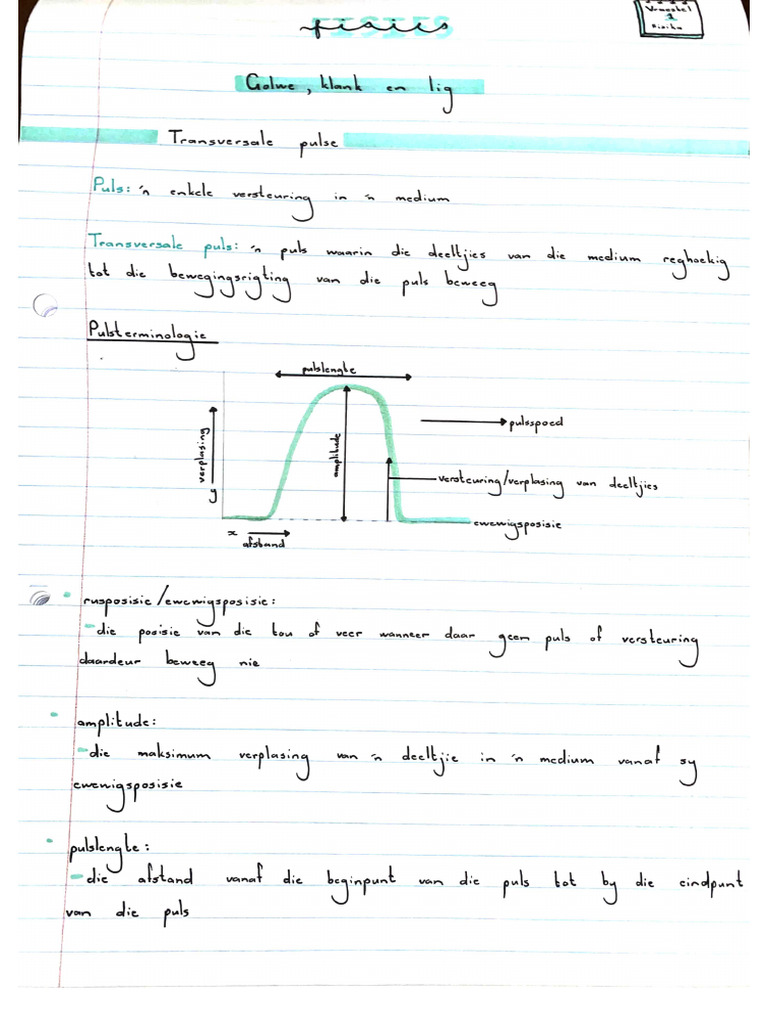 FISIES
fisies
Vraestel
1
Fisika
Golwe, klank en lig
Transversale pulse
Puls: 'n enkele versteuring in 'n medium
Transversale puls: 'n puls waarin die deeltjies van die medium reghoekig
tot die bewegingsrigting van die puls beweeg
Pulsterminologie
pulslengte
pulsspoed
verplasing
y
amplitude
versteuring/verplasing van deeltjies
ewewigsposisie
x
afstand
rusposisie/ewewigsposisie:
-die posisie van die tou of veer wanneer daar geen puls of versteuring
daardeur beweeg nie
amplitude:
-die maksimum verplasing van 'n deeltjie in 'n medium vanaf sy
ewewigsposisie
pulslengte:
-die afstand vanaf die beginpunt van die puls tot by die eindpunt
van die puls